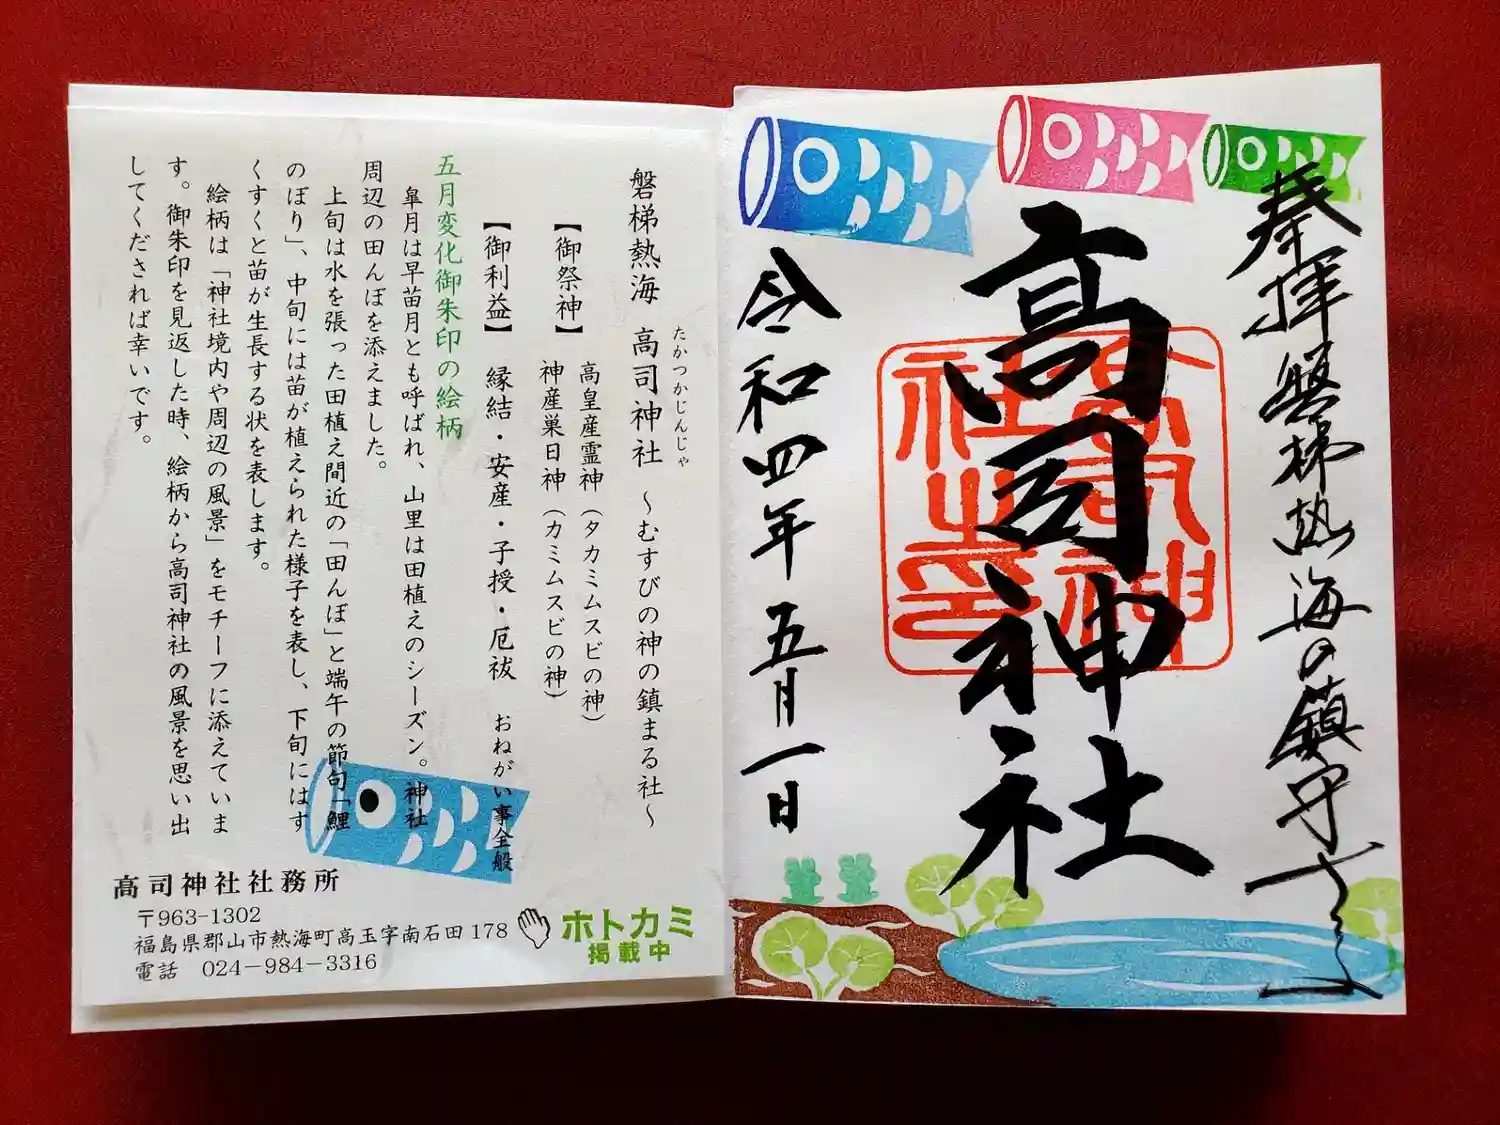 奉拝
磐梯熱海の鎮守
高司神社
令和四年五月一日
磐梯熱海 高司神社 ～むすびの神の鎮まる社～
たかつかじんじゃ
【御祭神】 高皇産霊神（タカミムスビの神）
神産巣日神（カミムスビの神）
【御利益】 縁結・安産・子授・厄祓 おねがい事全般
五月変化御朱印の絵柄
皐月は早苗月とも呼ばれ、山里は田植えのシーズン。神社
周辺の田んぼを添えました。
上旬は水を張った田植え間近の「田んぼ」と端午の節句「鯉
のぼり」、中旬には苗が植えられた様子を表し、下旬にはす
くすくと苗が生長する状を表します。
絵柄は「神社境内や周辺の風景」をモチーフに添えていま
す。御朱印を見返した時、絵柄から高司神社の風景を思い出
してくだされば幸いです。
高司神社社務所
〒963-1302
福島県郡山市熱海町高玉字南石田178
電話 024－984－3316
ホトカミ
掲載中